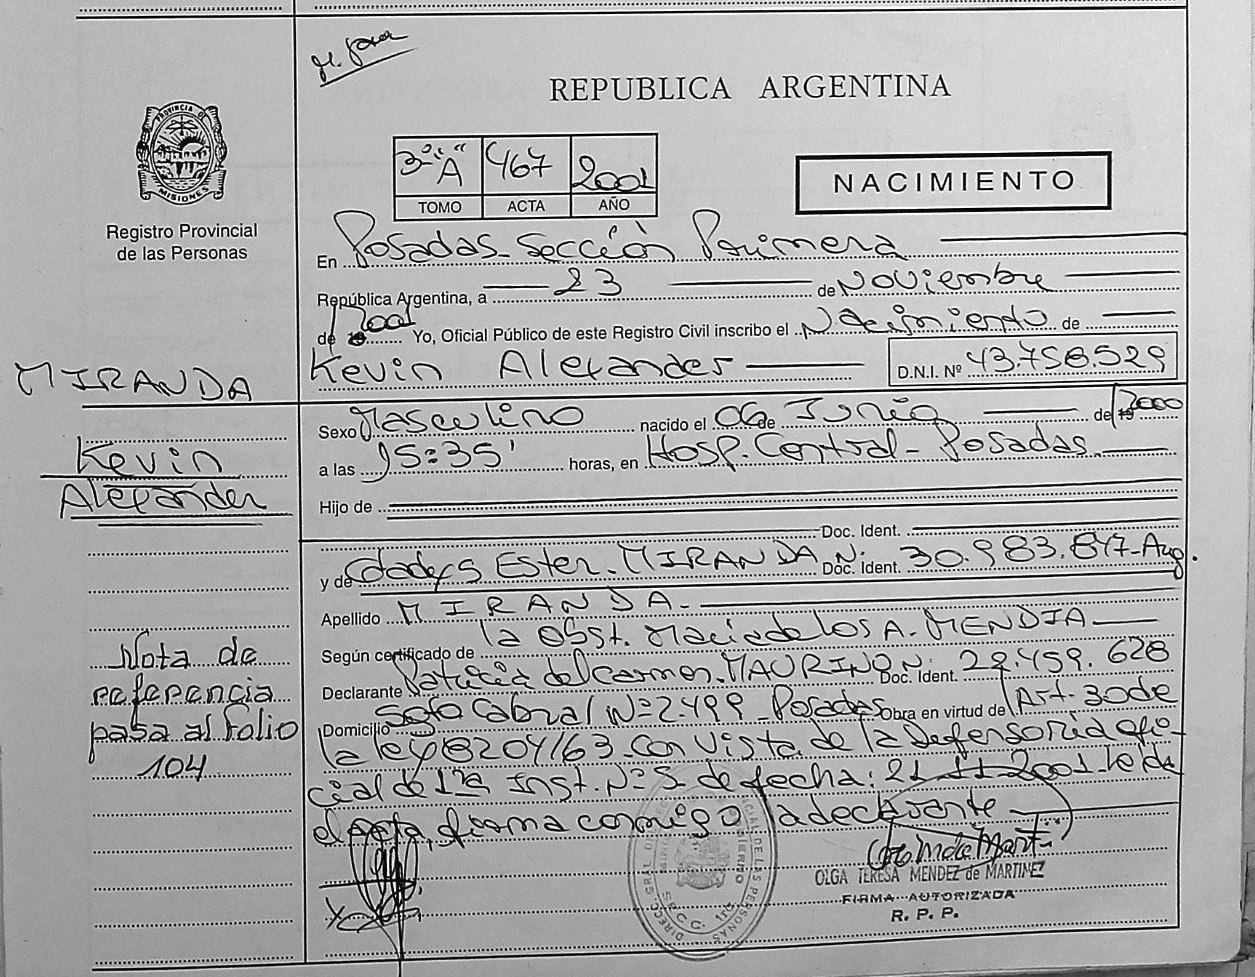 REPUBLICA ARGENTINA
PROVINCIA DE MISIONES
Registro Provincial
de las Personas
3º "A" 467 2001
TOMO ACTA AÑO
NACIMIENTO
En Posadas - Sección Primera
República Argentina, a 23 de Noviembre
de 2001 Yo, Oficial Público de este Registro Civil inscribo el Nacimiento de
Kevin Alexander D.N.I. Nº 43.758.529
MIRANDA
Kevin
Alexander
Sexo Masculino nacido el 06 de Junio de 2000
a las 15:35' horas, en Hosp. Central - Posadas.
Hijo de
Doc. Ident.
y de Gladys Ester MIRANDA N. Doc. Ident. 30.983.847-Arg.
Apellido MIRANDA.
Según certificado de la Obst. Maria de los A. MENDIA
Declarante Patricia del Carmen MAURIÑO N. Doc. Ident. 22.459.628
Domicilio Sgto Cabral Nº 2.499 - Posadas Obra en virtud de Art. 30 de
la ley 8204/63 con vista de la Defensoria ofi-
cial de 1ra Inst. Nº 5 de fecha: 21-11-2001 - leida
el Acta, firma conmigo la declarante
Nota de
referencia
pasa al folio
104
OLGA TERESA MENDEZ de MARTINEZ
FIRMA AUTORIZADA
R. P. P.